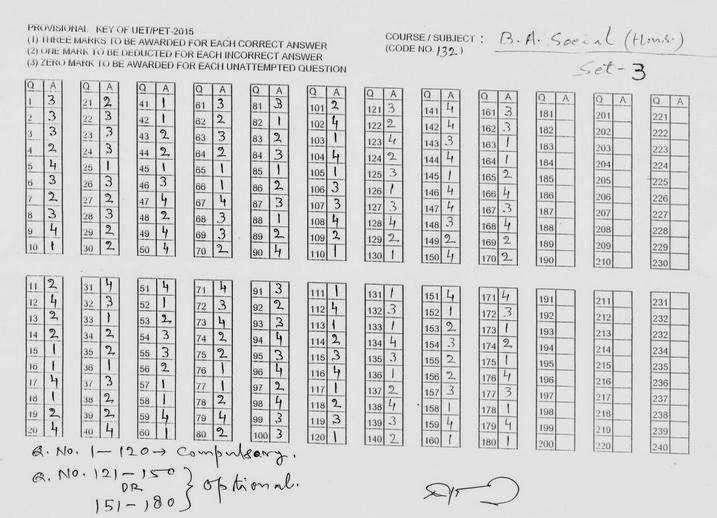 PROVISIONAL KEY OF UET/PET-2015
(1) THREE MARKS TO BE AWARDED FOR EACH CORRECT ANSWER
(2) ONE MARK TO BE DEDUCTED FOR EACH INCORRECT ANSWER
(3) ZERO MARK TO BE AWARDED FOR EACH UNATTEMPTED QUESTION
COURSE / SUBJECT : B.A. Social (Hons.)
(CODE NO. 132)
Set-3
Q A Q A Q A Q A Q A Q A Q A Q A Q A Q A Q A Q A
1 3 21 2 41 1 61 3 81 3 101 2 121 3 141 4 161 3 181 201 221
2 3 22 3 42 1 62 2 82 1 102 4 122 2 142 4 162 3 182 202 222
3 3 23 3 43 2 63 3 83 2 103 1 123 4 143 3 163 1 183 203 223
4 2 24 3 44 2 64 2 84 3 104 4 124 2 144 4 164 1 184 204 224
5 4 25 1 45 1 65 1 85 1 105 1 125 3 145 1 165 2 185 205 225
6 3 26 3 46 3 66 1 86 2 106 3 126 1 146 4 166 4 186 206 226
7 2 27 2 47 4 67 4 87 3 107 3 127 3 147 4 167 3 187 207 227
8 3 28 3 48 2 68 3 88 1 108 4 128 4 148 3 168 4 188 208 228
9 4 29 2 49 4 69 3 89 2 109 2 129 2 149 2 169 2 189 209 229
10 1 30 2 50 4 70 2 90 4 110 1 130 1 150 4 170 2 190 210 230
11 2 31 4 51 4 71 4 91 3 111 1 131 1 151 4 171 4 191 211 231
12 4 32 3 52 1 72 3 92 2 112 4 132 3 152 1 172 3 192 212 232
13 2 33 1 53 2 73 4 93 3 113 1 133 1 153 2 173 1 193 213 233
14 2 34 2 54 3 74 2 94 4 114 2 134 4 154 3 174 2 194 214 234
15 1 35 2 55 3 75 2 95 3 115 3 135 3 155 2 175 1 195 215 235
16 1 36 1 56 2 76 1 96 4 116 4 136 1 156 2 176 4 196 216 236
17 4 37 3 57 1 77 1 97 2 117 1 137 2 157 3 177 3 197 217 237
18 1 38 2 58 1 78 2 98 4 118 2 138 4 158 1 178 1 198 218 238
19 2 39 2 59 4 79 4 99 3 119 3 139 3 159 4 179 4 199 219 239
20 4 40 4 60 1 80 2 100 3 120 1 140 2 160 1 180 1 200 220 240
Q. No. 1-120 → Compulsary.
Q. No. 121-150
OR
151-180
} optional.